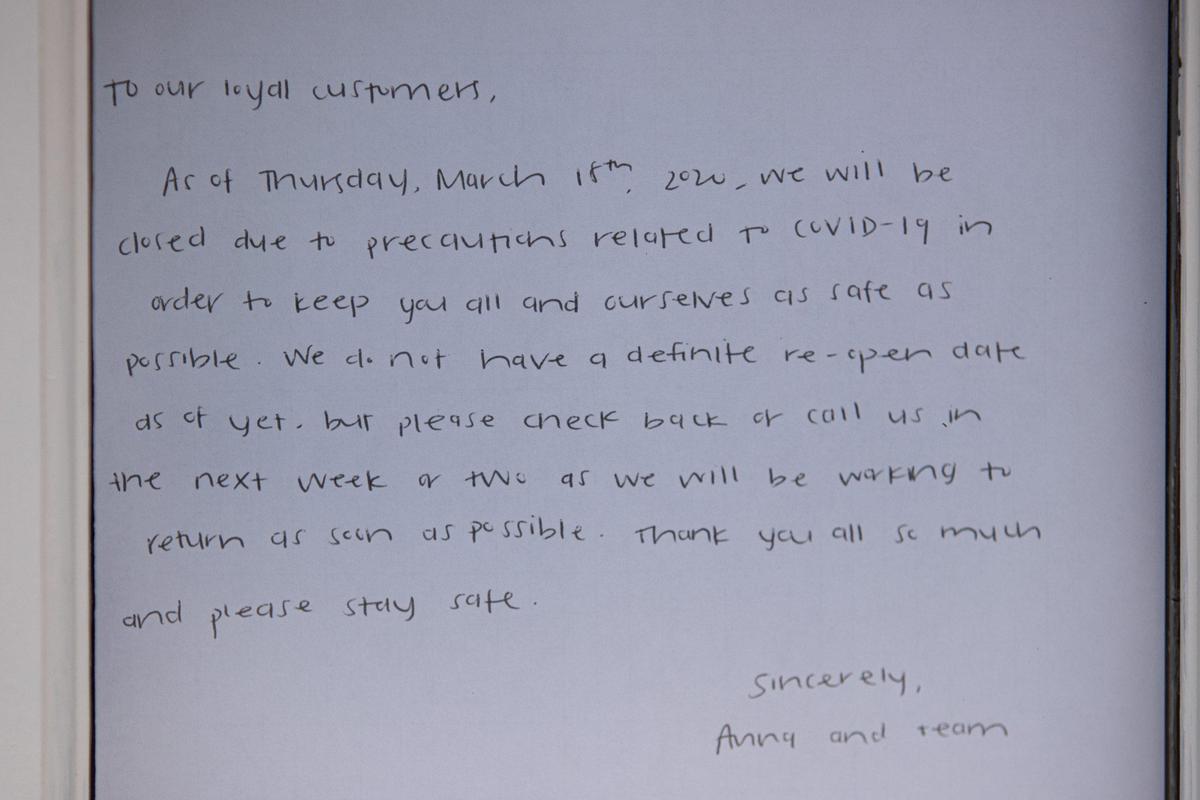 To our loyal customers,
As of Thursday, March 2020, we will be
closed due to precautions related to COVID-19 in
order to keep you all and ourselves as safe as
possible. We do not have a definite re-open date
as of yet, but please check back or call us in
the next week or two as we will be working to
return as soon as possible. Thank you all so much
and please stay safe.
Sincerely,
Anna and team